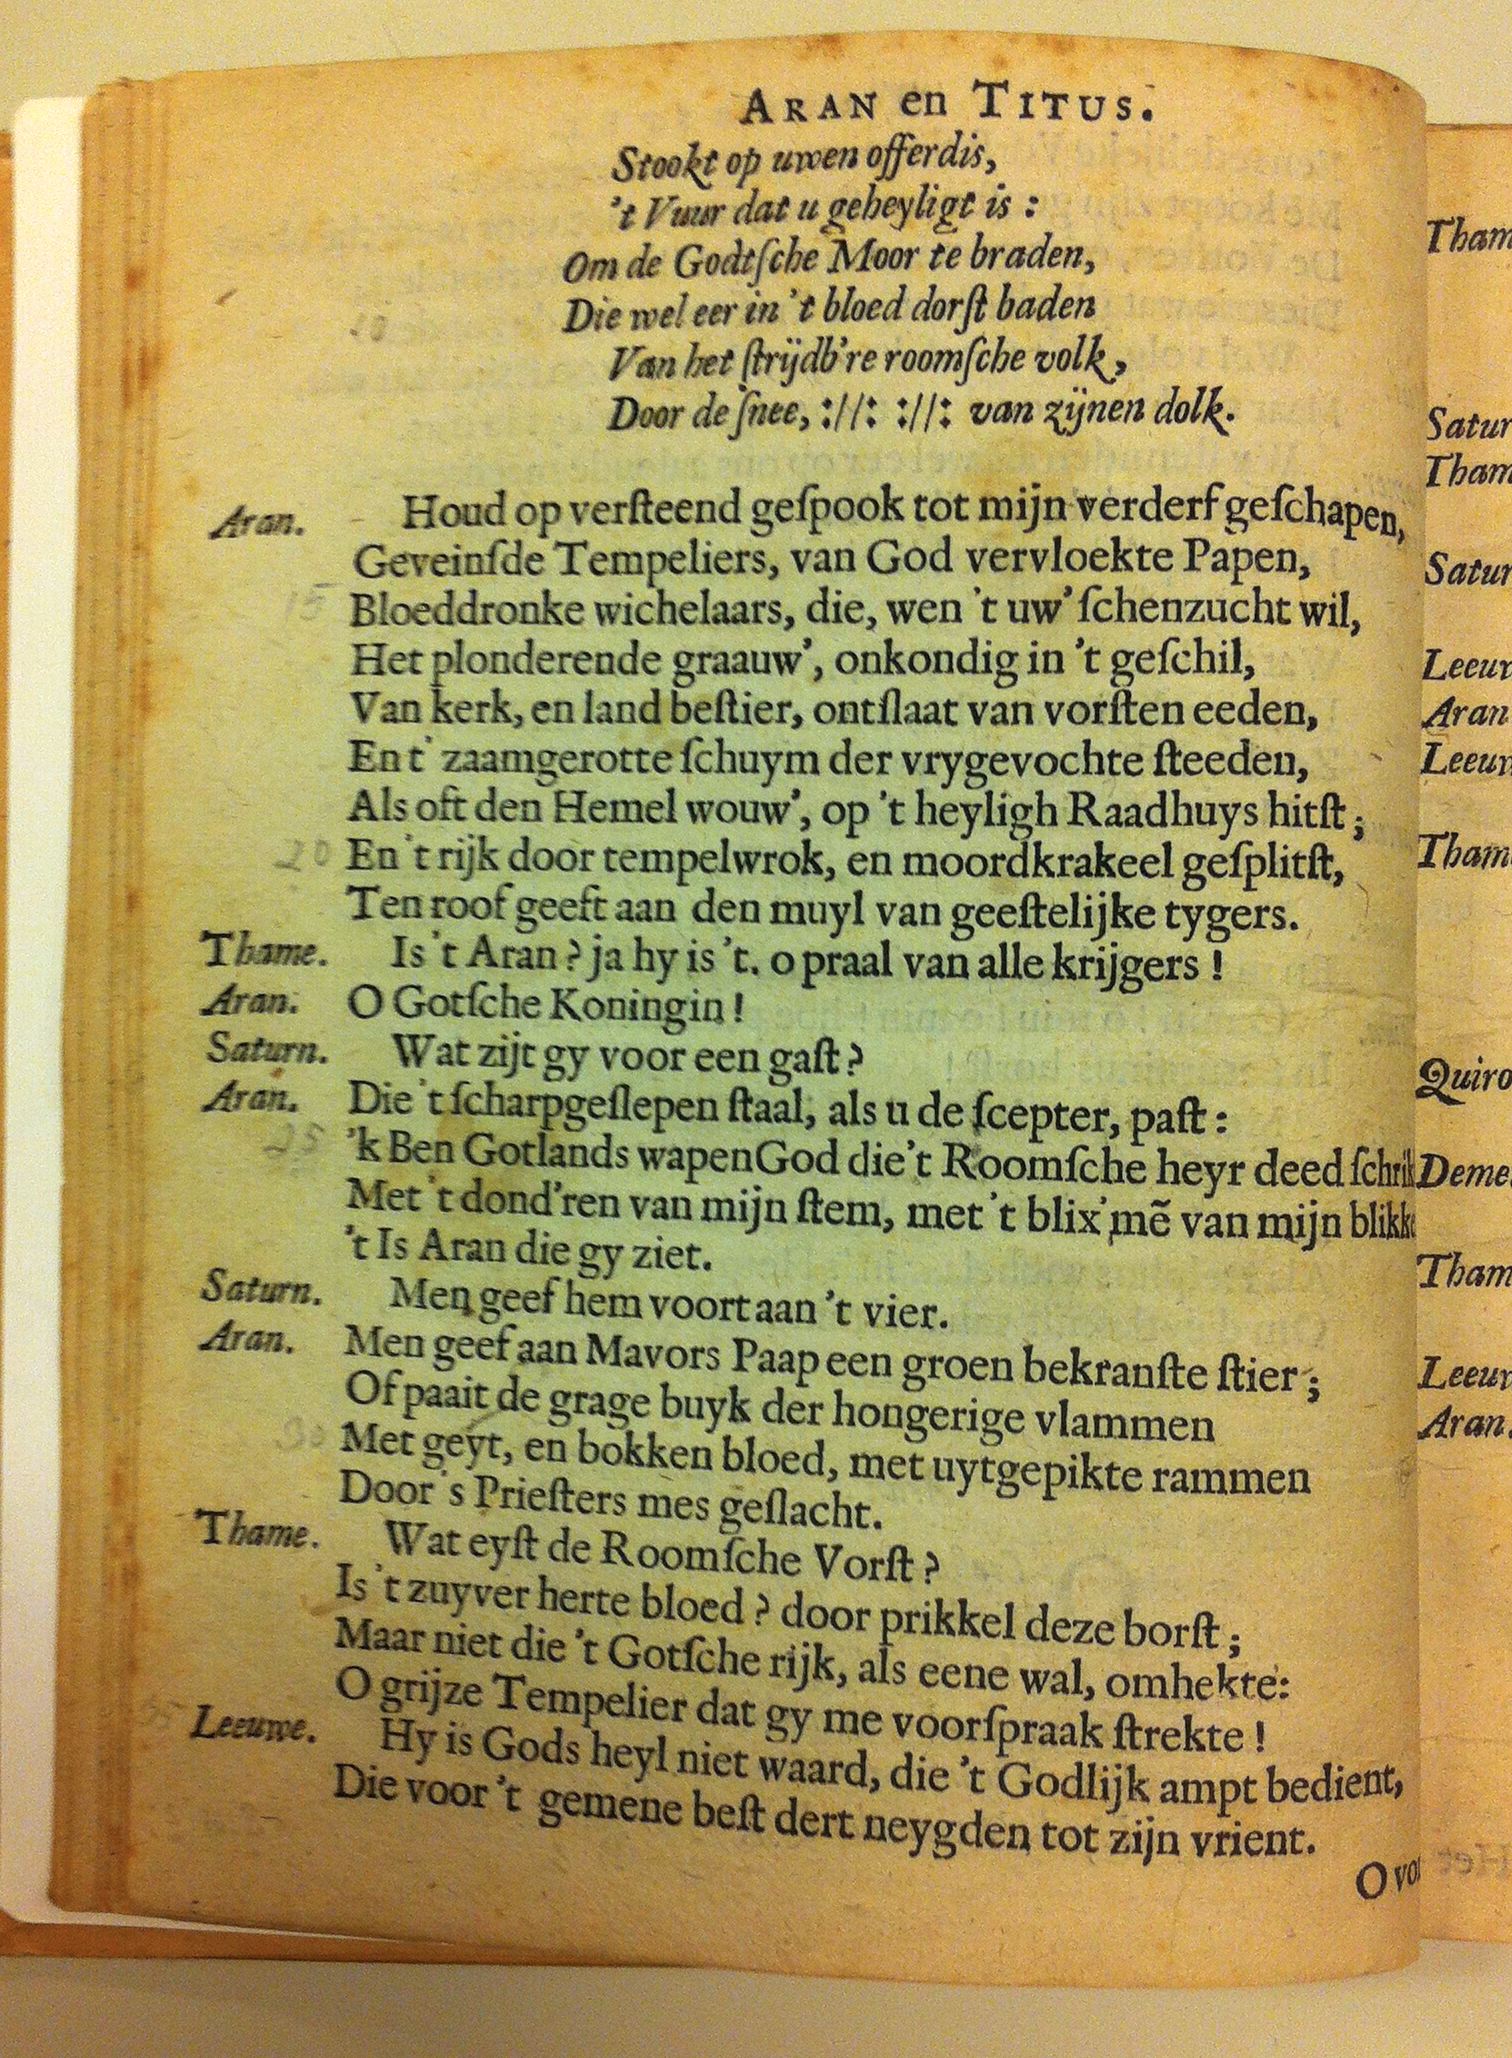 ARAN en TITUS.
Stookt op uwen offerdis,
't Vuur dat u geheyligt is :
Om de Godtſche Moor te braden,
Die wel eer in 't bloed dorſt baden
Van het ſtrijdb're roomſche volk,
Door de ſnee, ://: ://: van zijnen dolk.
Aran. Houd op verſteend geſpook tot mijn verderf geſchapen,
Geveinſde Tempeliers, van God vervloekte Papen,
Bloeddronke wichelaars, die, wen 't uw' ſchenzucht wil,
Het plonderende graauw', onkondig in 't geſchil,
Van kerk, en land beſtier, ontſlaat van vorſten eeden,
En t' zaamgerotte ſchuym der vrygevochte ſteeden,
Als oft den Hemel wouw', op 't heyligh Raadhuys hitſt ;
En 't rijk door tempelwrok, en moordkrakeel geſplitſt,
Ten roof geeft aan den muyl van geeſtelijke tygers.
Thame. Is 't Aran ? ja hy is 't. o praal van alle krijgers !
Aran. O Gotſche Koningin !
Saturn. Wat zijt gy voor een gaſt ?
Aran. Die 't ſcharpgeſlepen ſtaal, als u de ſcepter, paſt :
'k Ben Gotlands wapenGod die 't Roomſche heyr deed
Met 't dond'ren van mijn ſtem, met 't blix'mē van mijn
't Is Aran die gy ziet.
Saturn. Men geef hem voort aan 't vier.
Aran. Men geef aan Mavors Paap een groen bekranſte ſtier ;
Of paait de grage buyk der hongerige vlammen
Met geyt, en bokken bloed, met uytgepikte rammen
Door 's Prieſters mes geſlacht.
Thame. Wat eyſt de Roomſche Vorſt ?
Is 't zuyver herte bloed ? door prikkel deze borſt ;
Maar niet die 't Gotſche rijk, als eene wal, omhekte:
O grijze Tempelier dat gy me voorſpraak ſtrekte !
Leeuwe. Hy is Gods heyl niet waard, die 't Godlijk ampt bedient,
Die voor 't gemene beſt dert neygden tot zijn vrient.
O
Tham
Satur
Tham
Satur
Leeuw
Aran
Leeuw
Tham
Quiro
Deme
Tham
Leeuw
Aran.
15
20
25
30